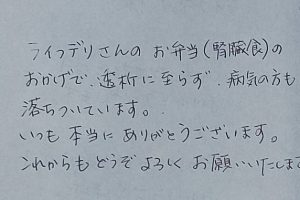 ライフデリさんの お弁当(腎臓食)の
おかげで、透析に至らず、病気の方も
落ちついています。
いつも 本当に ありがとうございます。
これからも どうぞ よろしく お願いいたします